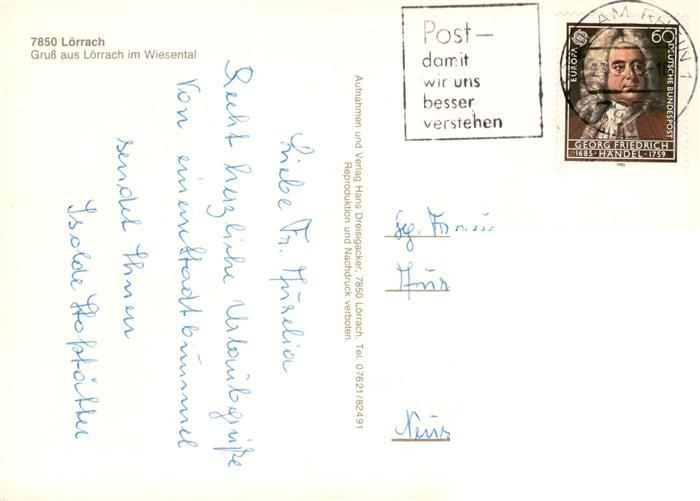 7850 Lörrach
Gruß aus Lörrach im Wiesental
Post—
damit
wir uns
besser
verstehen
AM RHEIN 1
EUROPA
60
DEUTSCHE BUNDESPOST
GEORG FRIEDRICH
1685 · HÄNDEL · 1759
1985
Aufnahmen und Verlag Hans Dreisigacker, 7850 Lörrach, Tel. 07621/82491
Reproduktion und Nachdruck verboten.
Liebe Fr.
Recht herzliche Urlaubgrüße
Von einem Stadtbummel
sendet Ihnen
Isolde